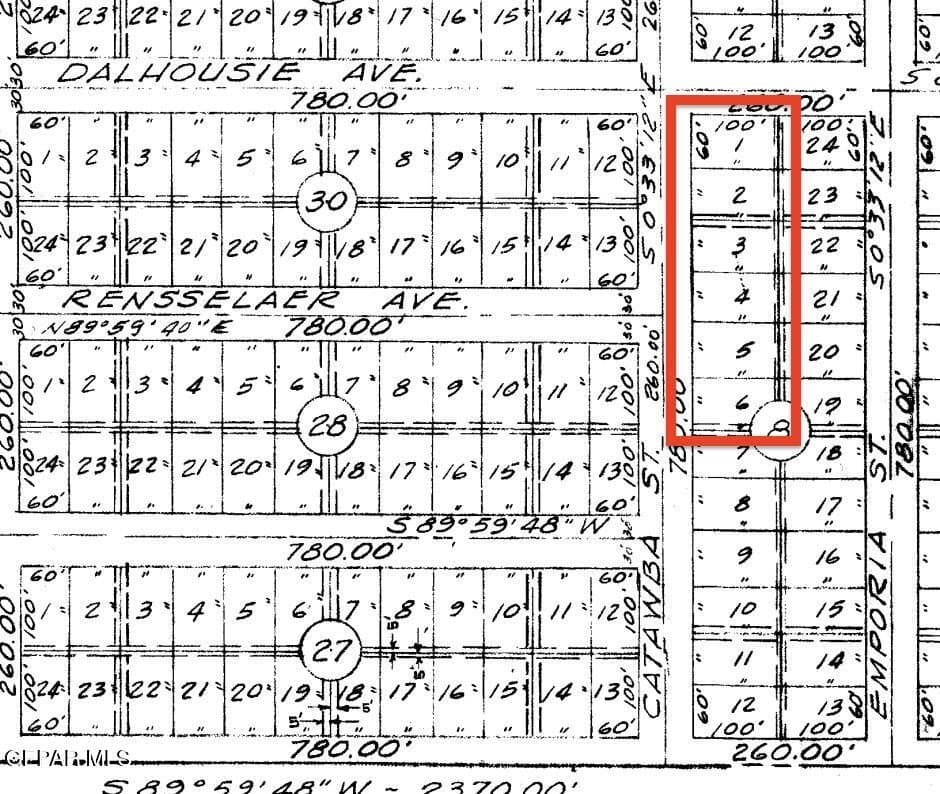 24 23 22 21 20 19 18 17 16 15 14 13 100'
60' " " " " " " " " 60'
60' 12 13 60'
100' 100'
DALHOUSIE AVE.
780.00'
60' " " " " " " " " 60'
100' 1 2 3 4 5 6 7 8 9 10 11 12 100'
260.00'
30
100' 24 23 22 21 20 19 18 17 16 15 14 13 100'
60' " " " " " " " " 60'
RENSSELAER AVE.
N 89°59'40" E 780.00'
60' " " " " " " " " 60'
100' 1 2 3 4 5 6 7 8 9 10 11 12 100'
260.00'
28
100' 24 23 22 21 20 19 18 17 16 15 14 13 100'
60' " " " " " " " " 60'
S 89°59'48" W
780.00'
60' " " " " " " " " 60'
100' 1 2 3 4 5 6 7 8 9 10 11 12 100'
260.00'
27
5' 5'
100' 24 23 22 21 20 19 18 17 16 15 14 13 100'
5' 5'
60' " " " " " " " " 60'
780.00'
30' 30'
30' 30'
30' 30'
260.00'
S 0°33'12" E
CATAWBA ST.
780.00
260.00'
100' 100'
60' 1 24 60'
2 23
3 22
4 21
5 20
6 19
7 18
8 17
9 16
10 15
11 14
60' 12 13 60'
100' 100'
260.00'
S0°33'12"E
EMPORIA ST.
780.00'
60'
60'
60'
GEPAR MLS
S 89°59'48" W ~ 2370.00'